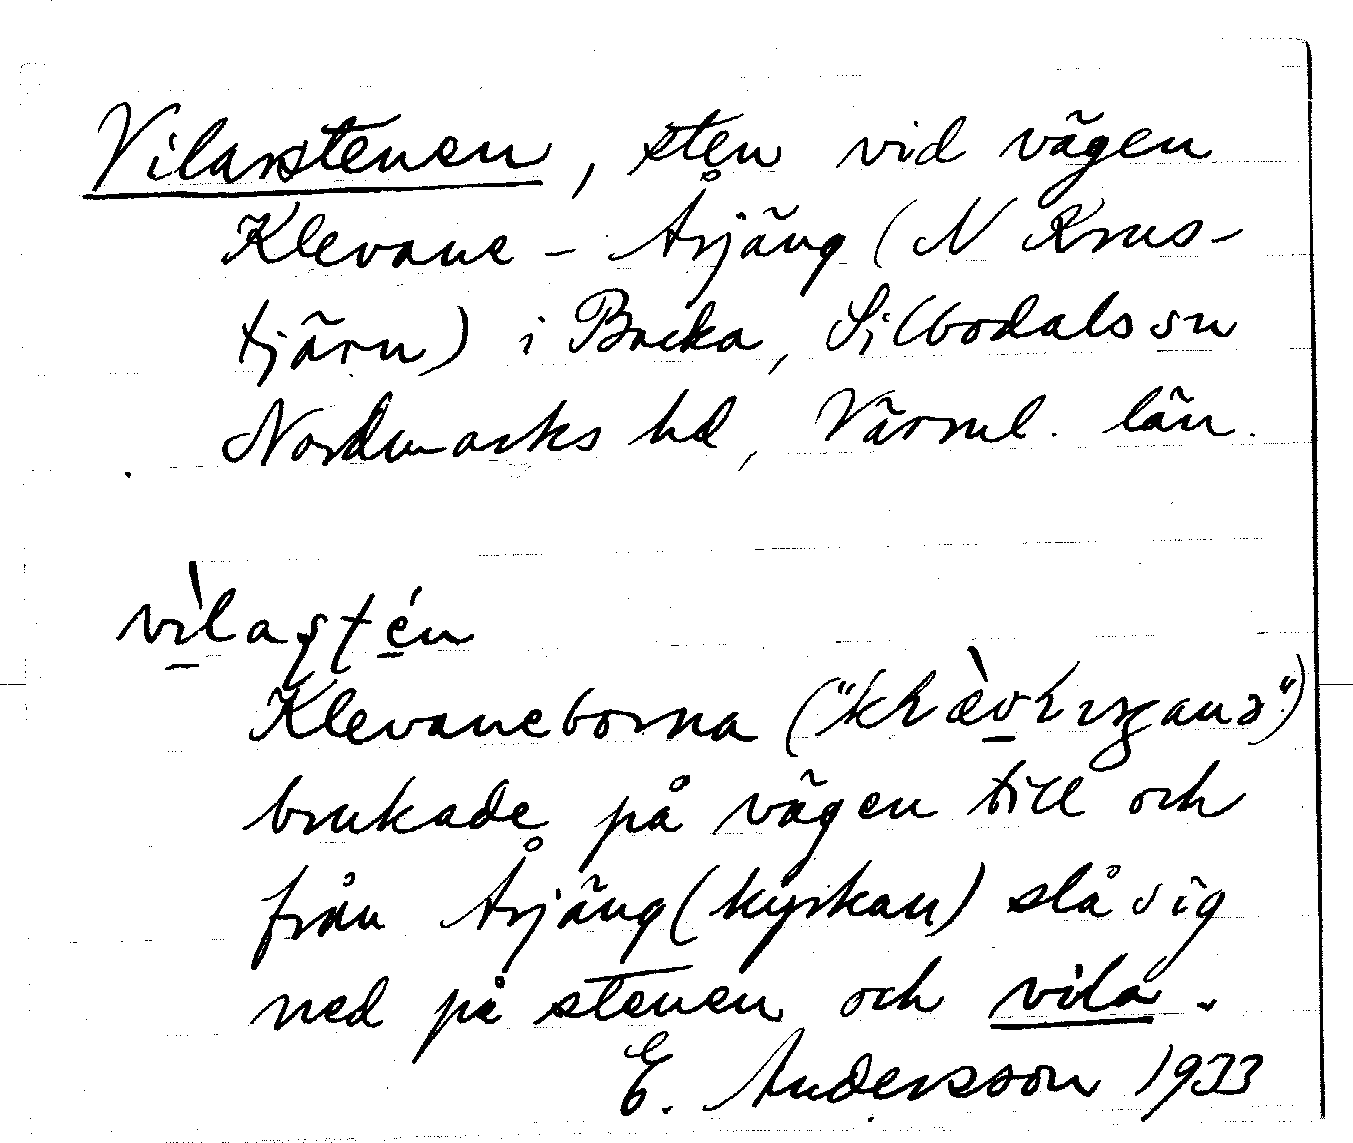 Vilarstenen, sten vid vägen
Klevane – Årjäng (N Krus-
tjärn) i Backa, Silbodals sn
Nordmarks hd, Värml. län.
vìlaʂtén
Klevaneborna ("
brukade på vägen till och
från Årjäng (kyrkan) slå sig
ned på stenen och vila.
E. Andersson 1933